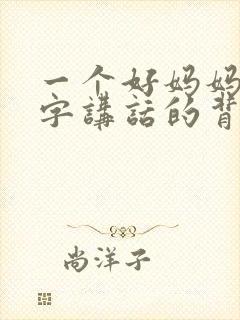 一个好妈妈
字講話的背
尚洋子